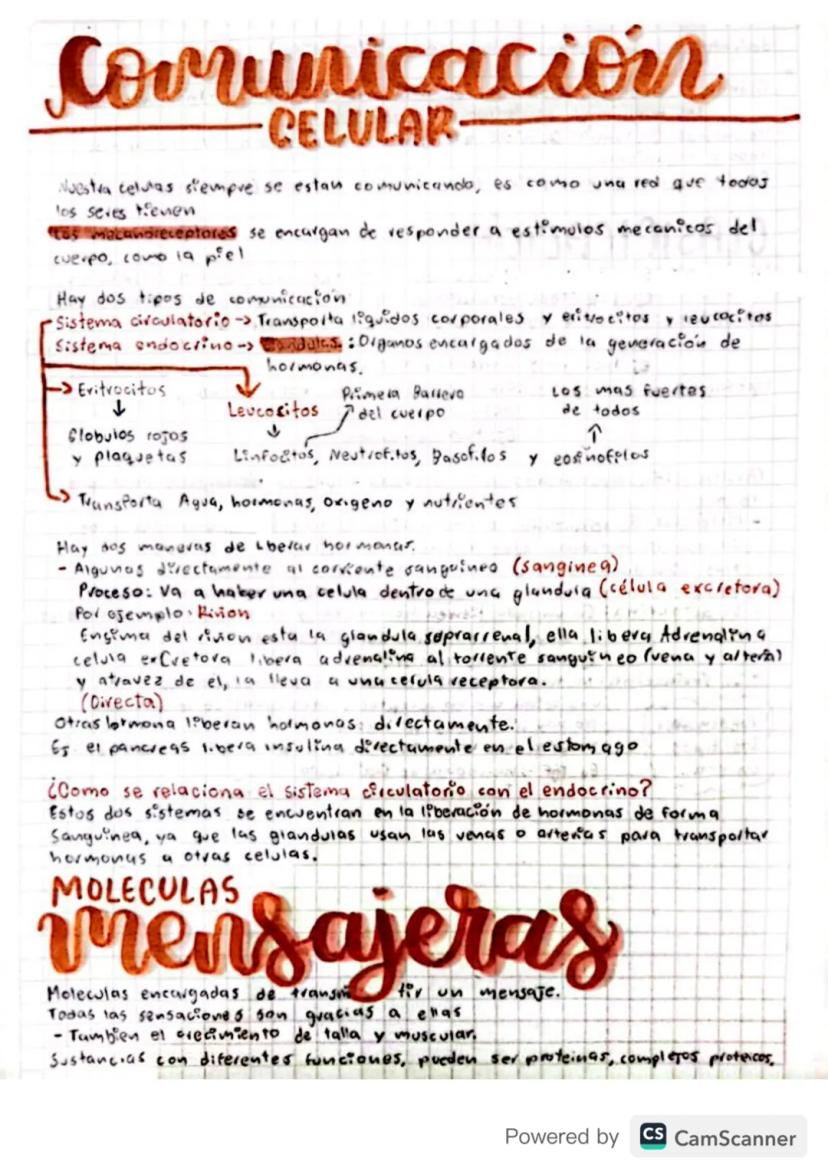 Comunicación
CELULAR
Nuestra celulas siempre se estan comunicando, es como una red que todos
los seres tienen
Los mecanoreceptores se encargan de responder a estimulos mecanicos del
cuerpo, como la piel
Hay dos tipos de comunicación
Sistema circulatorio -> Transporta liquidos corporales y eritrocitos y leucocitos
Sistema endocrino -> Glandulas : Organos encargados de la generación de
hormonas.
-> Eritrocitos
Globulos rojos
y plaquetas
Leucocitos
Primera Barrera
del cuerpo
Los mas fuertes
de todos
Linfocitos, Neutrofitos, Basofilos y eosinofilos
-> Transporta Agua, hormonas, oxigeno y nutrientes
Hay dos maneras de liberar hormonas.
- Algunas directamente al corriente sanguineo (sanginea)
Proceso: Va a haber una celula dentro de una glandula (célula excretora)
Por ejemplo: Riñon
Ensima del riñon esta la glandula soprarrenal, ella libera Adrenalina
celula excretora libera adrenalina al torriente sanguineo (vena y arteria)
y atravez de el, la lleva a una celula receptora.
(Directa)
Otras hormona liberan hormonas directamente.
Ej el pancreas libera insulina directamente en el estomago
¿Como se relaciona el sistema circulatorio con el endocrino?
Estos dos sistemas se encuentran en la liberación de hormonas de forma
Sanguinea, ya que las glandulas usan las venas o arterias para transportar
hormonas a otras celulas.
MOLECULAS
mensajeras
Moleculas encargadas de transmitir un mensaje.
Todas las sensaciones son gracias a ellas
- Tambien el crecimiento de talla y muscular.
Sustancias con diferentes funciones, pueden ser proteinas, complejos proteicos,
Powered by CS CamScanner